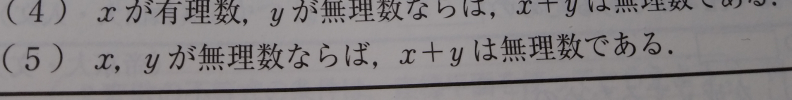 (4) xが有理数,yが無理数ならば,x+yは無理数である.
(5) x,yが無理数ならば,x+yは無理数である.